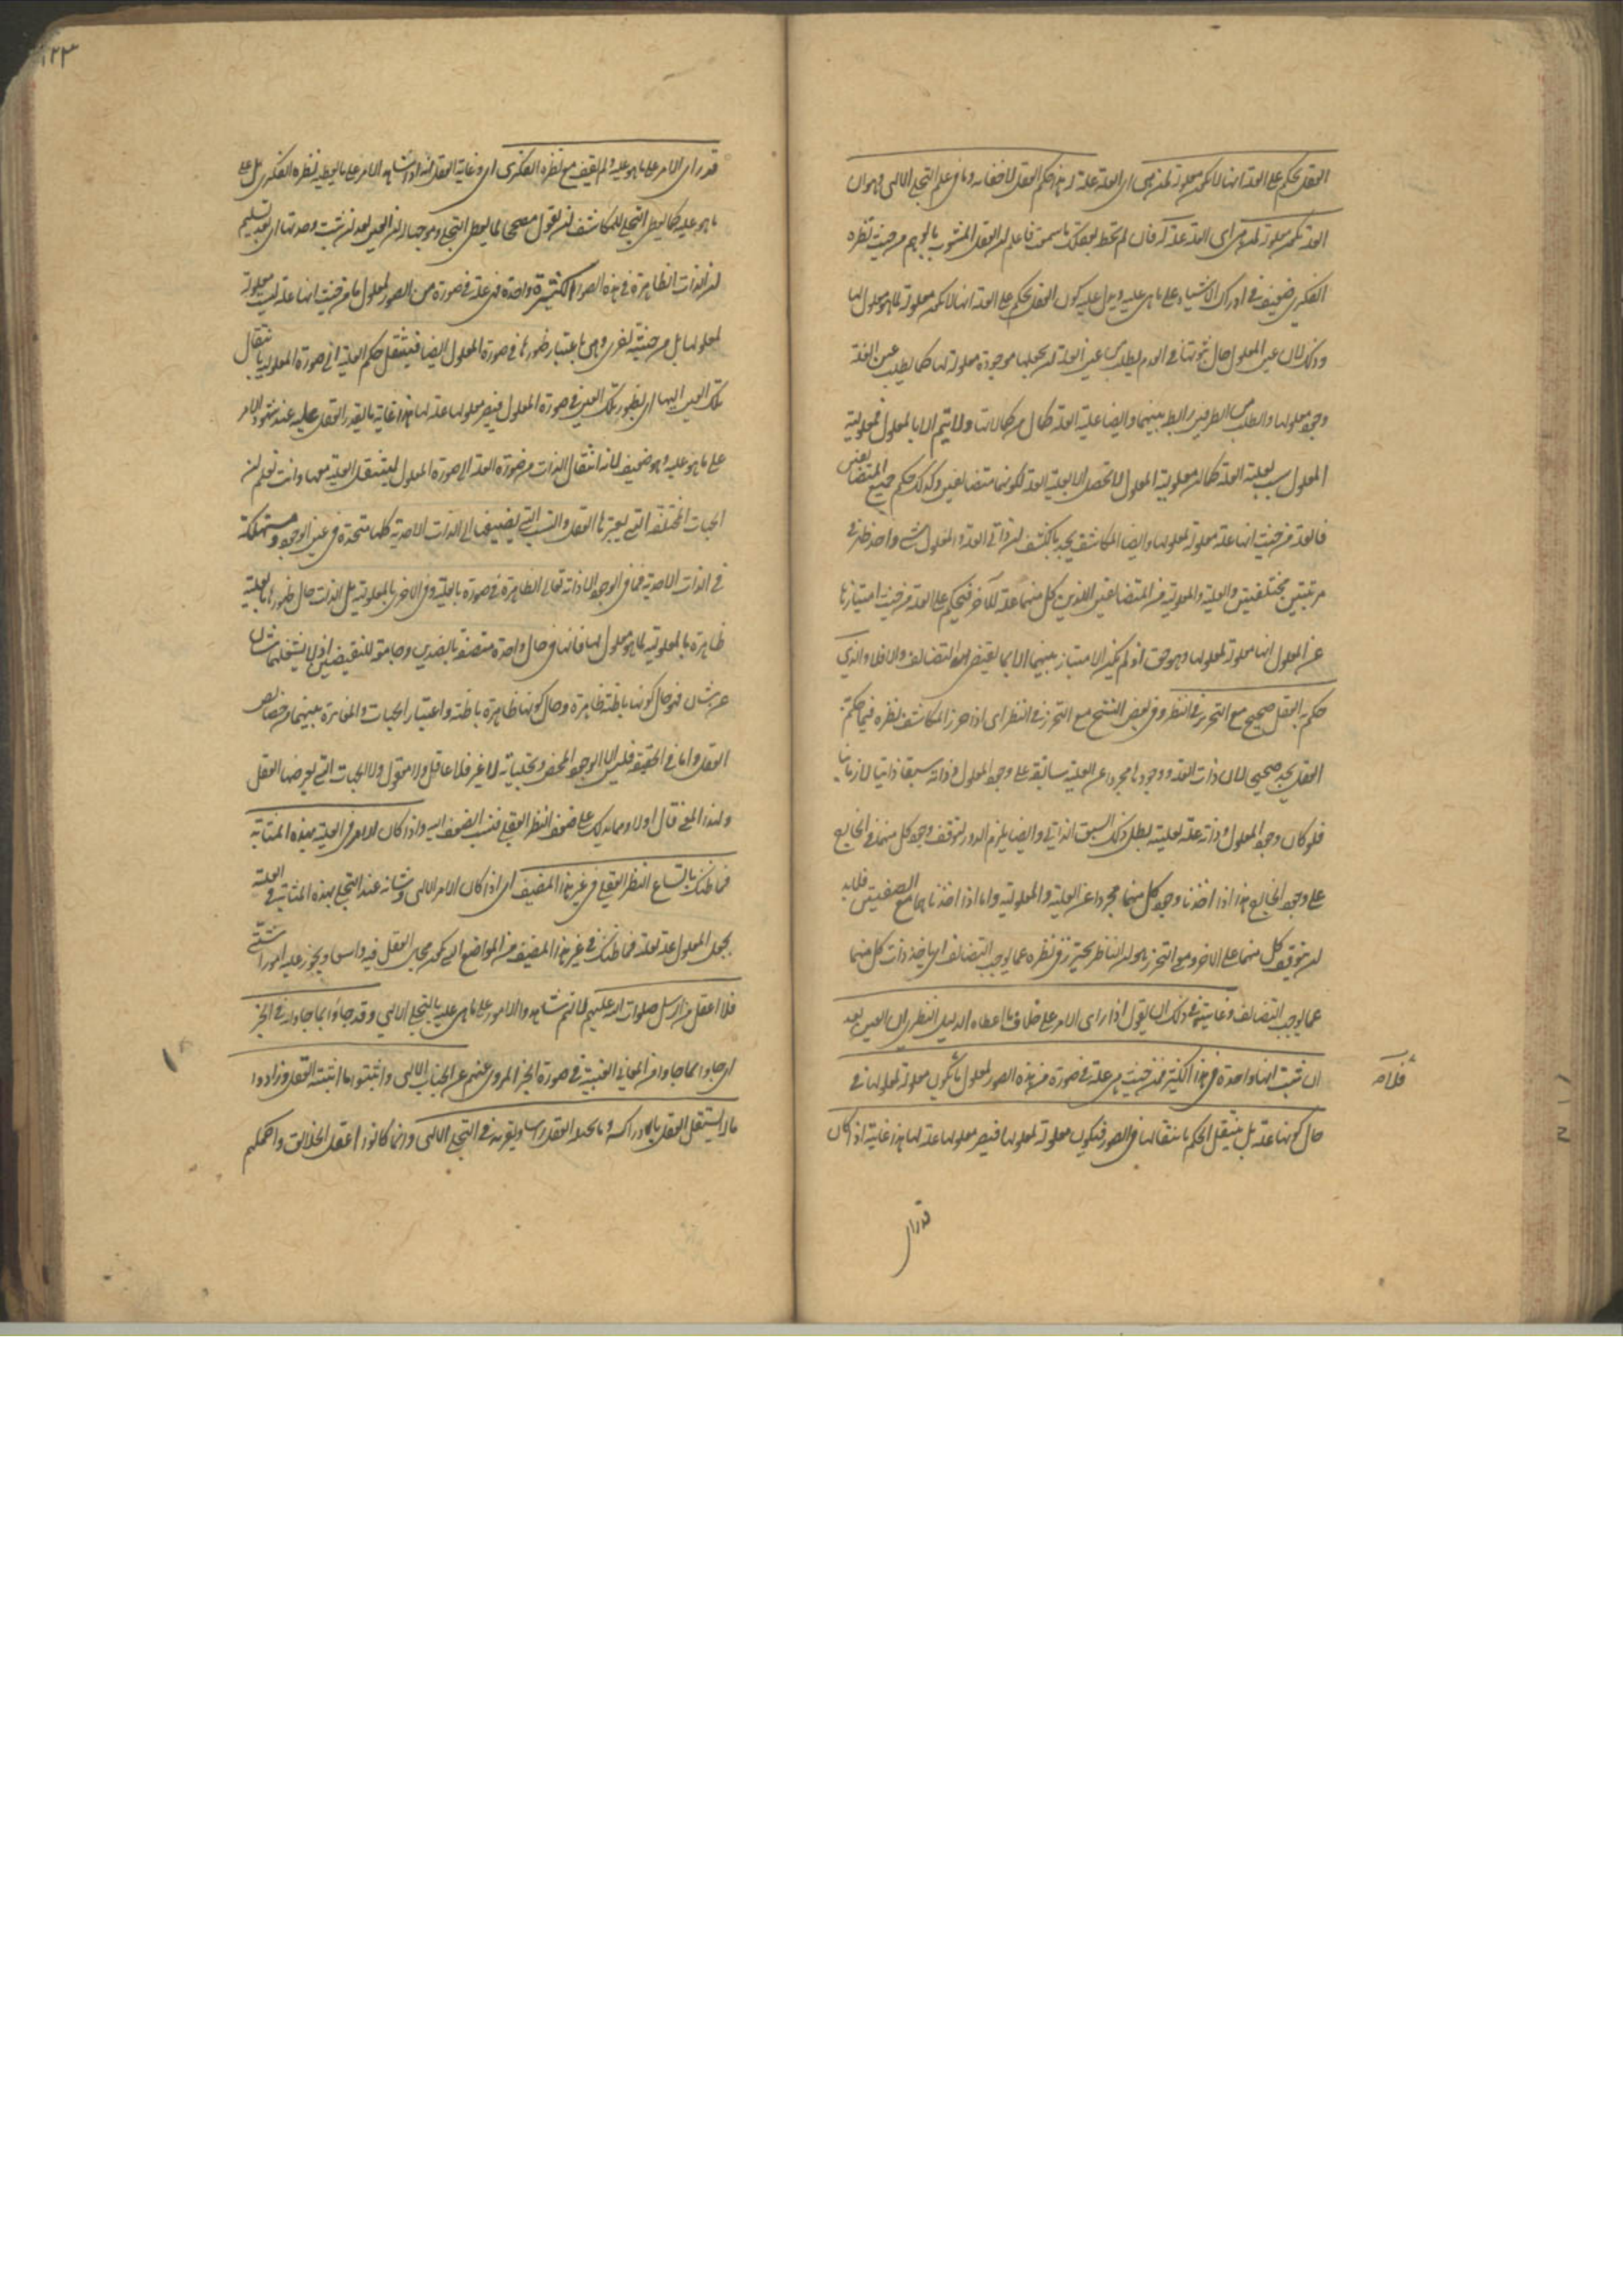 العقل يحكم على العلة انها لا تكون معلولة لمن هي اى العلة علة له هذا حكم العقل لا خفاء به وما فى علم التجلى الا هذا وهو ان
العلة تكون معلولة لمن هى اى العلة علة له فان لم تحط بعقلك ما سمعت فاعلم ان العقل المشوب بالوهم من حيث نظره
الفكرى ضعيف فى ادراك الاشياء على ما هى عليه ويدل عليه كون العقل يحكم على العلة انها لا تكون معلولة لما هو معلول لها
وذلك لان عين المعلول حال ثبوتها فى العدم يطلب من عين العلة ان يجعلها موجودة معلولة لها كما يطلب عين العلة
وجود معلولها والطلب من الطرفين رابط بينهما وايضا علية العلة كمال من كمالاتها ولا يتم الا بالمعلول فمعلولية
المعلول سبب لعلية العلة كما ان معلولية المعلول لا تحصل الا بعلية العلة لكونهما متضائفين وكذلك حكم جميع المتضائفين
فالعلة من حيث انها علة معلولة لمعلولها وايضا المكاشف يجد بالكشف ان ذاتى العلة والمعلول شئ واحد ظهر فى
مرتبتين مختلفتين والعلية والمعلولية من المتضائفين اللذين كل منهما علة للآخر فيحكم على العلة من حيث امتيازها
عن المعلول انها معلولة لمعلولها وهو حق اذ لم يكن الامتياز بينهما الا بما يقتضى التضائف والا فلا والذى
حكم به العقل صحيح مع التحرير فى النظر وفى بعض النسخ مع التحرز فى النظر اى اذا حرز المكاشف نظره فيما حكم به
العقل يجده صحيحا لان ذات العلة ووجودها مجردا عن العلية سابقة على وجود المعلول وذاته سبقا ذاتيا لا زمانيا
فلو كان وجود المعلول وذاته علة لعليته لبطل ذلك السبق الذاتى وايضا يلزم الدور لتوقف وجود كل منهما فى الخارج
على وجود الخارج هذا اذا اخذنا وجود كل منهما مجردا عن العلية والمعلولية واما اذا اخذناهما مع الصفتين فلا بد
ان يتوقف كل منهما على الآخر ومع التحرز هو ان الناظر يحترز فى نظره عما يوجب التضائف اى ياخذ ذات كل منهما
عما يوجب التضائف وغايته فى ذلك ان يقول اذا رأى الامر على خلاف ما اعطاه الدليل النظرى ان العين بعد
ان ثبت انها واحدة فى هذا الكثير فمن حيث هى علة فى صورة من هذه الصور لمعلول ما فلا تكون معلولة لمعلولها فى
حال كونها علة بل ينتقل الحكم بانتقالها فى الصور فتكون معلولة لمعلولها فيصير معلولها علة لها هذا غايته اذا كان
فلا
قد راى
١٢٣
قد راى الامر على ما هو عليه ولم يقف مع نظره الفكرى اى وغاية العقل انه اذا شاهد الامر على ما لا يعطيه نظره الفكرى بل على
ما هو عليه كما يعطى التجلى للمكاشف ان يقول مصححا لما يعطى التجلى وموجبا ان العين بعد ان ثبت وحدتها اى بعد تسليم
ان الذات الظاهرة فى هذه الصور الكثيرة واحدة هى علة فى صورة من الصور لمعلول ما من حيث انها علة ليست معلولة
لمعلولها بل من حيثية اخرى وهى باعتبار ظهورها فى صورة المعلول ايضا فينتقل حكم العلية الى صورة المعلولية بانتقال
تلك العين اليها اى بظهور تلك العين فى صورة المعلول فيصير معلولها علة لها هذا غاية ما يقدر العقل عليه عند شهود الامر
على ما هو عليه وهو ضعيف لانه انتقال الذات من صورة العلة الى صورة المعلول لينتقل العلية معها وانت تعلم ان
الجهات المختلفة التى يعتبرها العقل والنسب التى يضيفها الى الذات الاحدية كلها متحدة فى عين الوجود ومستهلكة
فى الذات الاحدية فما فى الوجود الا ذاته تعالى الظاهرة فى صورة بالعلية وفى الاخرى بالمعلولية بل الذات حال ظهورها بالعلية
ظاهرة بالمعلولية لما هو معلول لها فانها فى حال واحدة متصفة بالضدين وجامعة للنقيضين اذ لا يشغلها شان
عن شان فهى حال كونها باطنة ظاهرة وحال كونها ظاهرة باطنة واعتبار الجهات والمغايرة بينهما من خصائص
العقل واما فى الحقيقة فليس الا الوجود المحض وتجلياته لا غير فلا عاقل ولا معقول ولا الجهات التى يعرضها العقل
ولهذا المعنى قال اولا ومما يدلك على ضعف النظر العقلى فنسب الضعف اليه واذا كان الامر فى العلية بهذه المثابة
فما ظنك باتساع النظر العقلى فى غير هذا المضيق اى اذا كان الامر الالهى وشانه عند التجلى بهذه المثابة فى العلة
بجعل المعلول علة لعلته فما ظنك فى غير هذا المضيق من المواضع التى يكون مجال العقل فيه واسعا ويجوز عليه امورا شتى
فلا اعقل من الرسل صلوات الله عليهم لانهم شاهدوا الامور على ما هى عليه بالتجلى الالهى وقد جاؤا بما جاؤا به فى الخبر
اى جاؤا بما جاؤا من المعانى الغيبية فى صورة الخبر المروى عنهم عن الجناب الالهى واثبتوا ما اثبته العقل وزادوا
ما لا يستقل العقل بادراكه وما يحيله العقل راسا ويقر به فى التجلى الالهى وانما كانوا اعقل الخلائق واكملهم